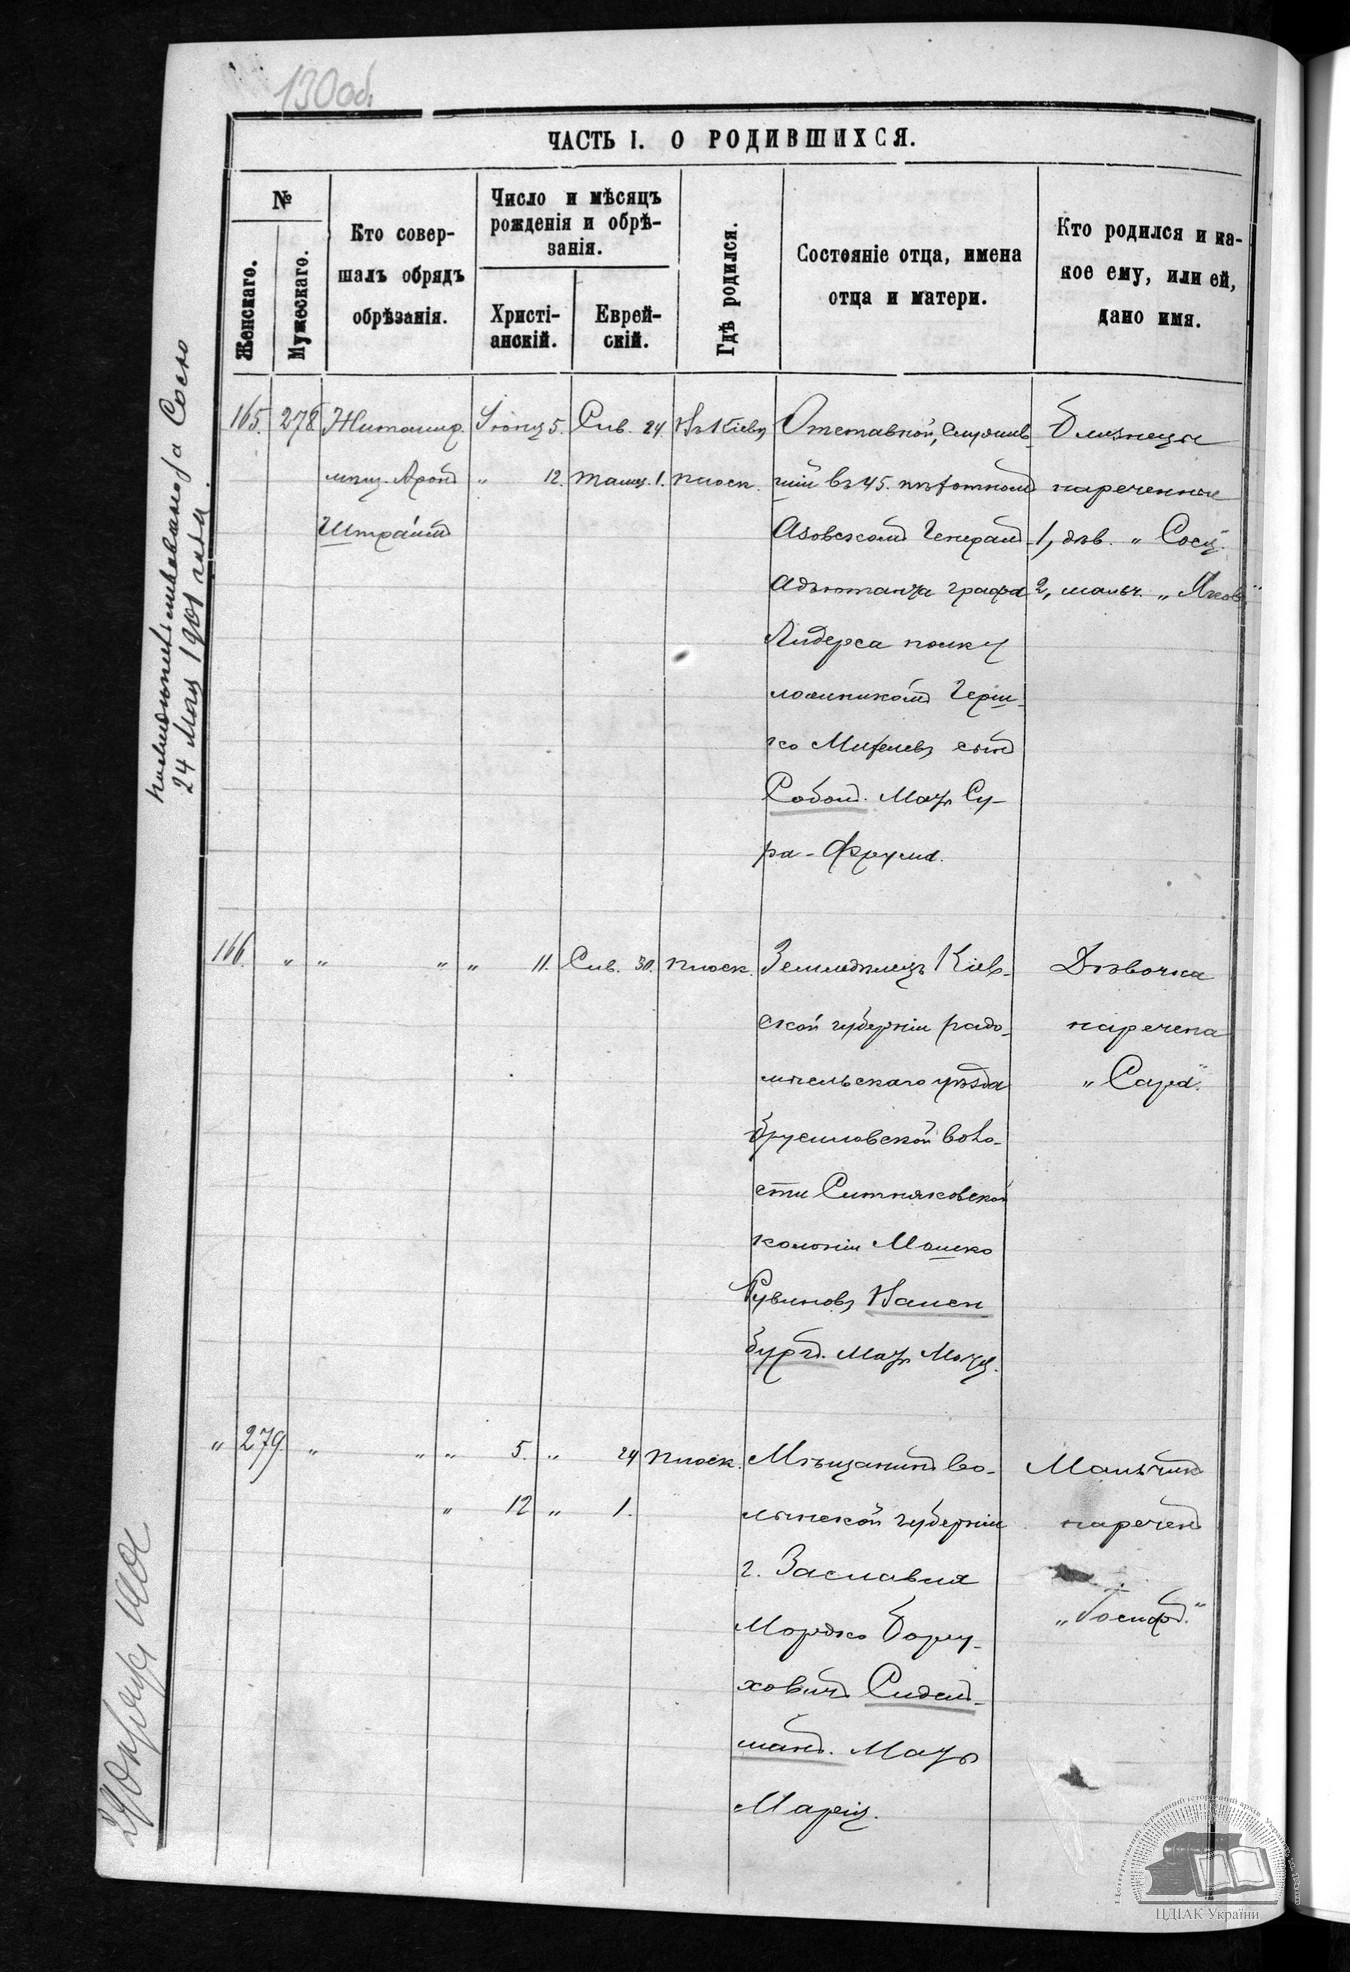 130об.
ЧАСТЬ I. О РОДИВШИХСЯ.
№
Женскаго.
Мужескаго.
Кто совер-
шалъ обрядъ
обрѣзанія.
Число и мѣсяцъ
рожденія и обрѣ-
занія.
Христі-
анскій.
Еврей-
скій.
Гдѣ родился.
Состояніе отца, имена
отца и матери.
Кто родился и ка-
кое ему, или ей,
дано имя.
165. 278 Житомир. Іюня 5. Сив. 24. Въ Кіевѣ Отставной, служив-
мѣщ. Аронъ „ 12. Тамуз. 1. Плоск. шій въ 45. пѣхотномъ
Азовскомъ Генералъ-
Адъютанта графа
Лидерса полку
ложникомъ Герш-
ко Михелевъ сынъ
Соболь. Мать Су-
ра-Фрума.
Близнецы
нареченные
1, дѣв. „ Сося.
2, мальч. „ Яковъ“
166. „ „ „ „ 11. Сив. 30. Плоск. Земледѣлецъ Кіев-
ской губерніи радо-
мысльскаго уѣзда
брусиловской воло-
сти Ситняковской
колоніи Мошко
Рувиновъ
бургъ. Мать
Дѣвочка
наречена
„ Сура“.
„ 279. „ „ „ 5. „ 24 Плоск. Мѣщанинъ во-
„ 12 „ 1. лынской губерніи
г. Заславля
Мордко Бору-
ховичъ Сидель-
манъ. Мать
Марія.
Мальчикъ
нареченъ
„Іосифъ.“
24 Мая 1901 года